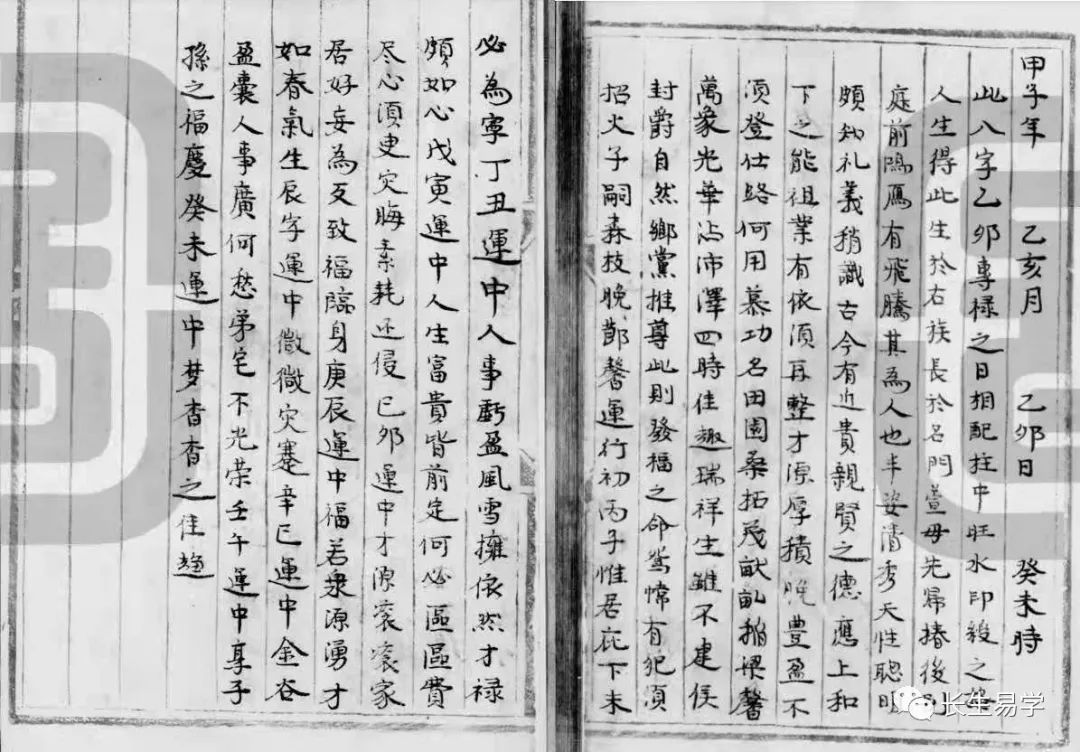 甲子年 乙亥月 乙卯日 癸未時
此八字乙卯專禄之日相配拄中旺水印綬之
人生得此生於右族長於名門萱母先帰椿後
庭前鴻鴈有飛騰其為人也丰姿清秀天性聡明
頗知礼義稍識古今有近貴親賢之德應上和
下之能祖業有依須再整才源厚積晚豊盈不
須登仕路何用慕功名田園桑拓茂畝畆稻梁馨
萬象光華沾沛澤四時佳趣瑞祥生雖不建侯
封爵自然鄉黨推尊此則發福之命鴛幃有犯須
招火子嗣森枝晚節馨運行初丙子惟居庇下未
必為寧丁丑運中人事虧盈風雪擁依然才禄
頗如心戊寅運中人生富貴皆前定何必區區費
尽心須史灾晦素耗还侵己夘運中才源衮衮家
居好妄為反致福臨身庚辰運中福若衆源湧才
如春氣生辰字運中微微灾蹇辛巳運中金谷
盈囊人事廣何愁弟宅不光荣壬午運中享子
孫之福慶癸未運中梦杳杳之佳趣
长生易学